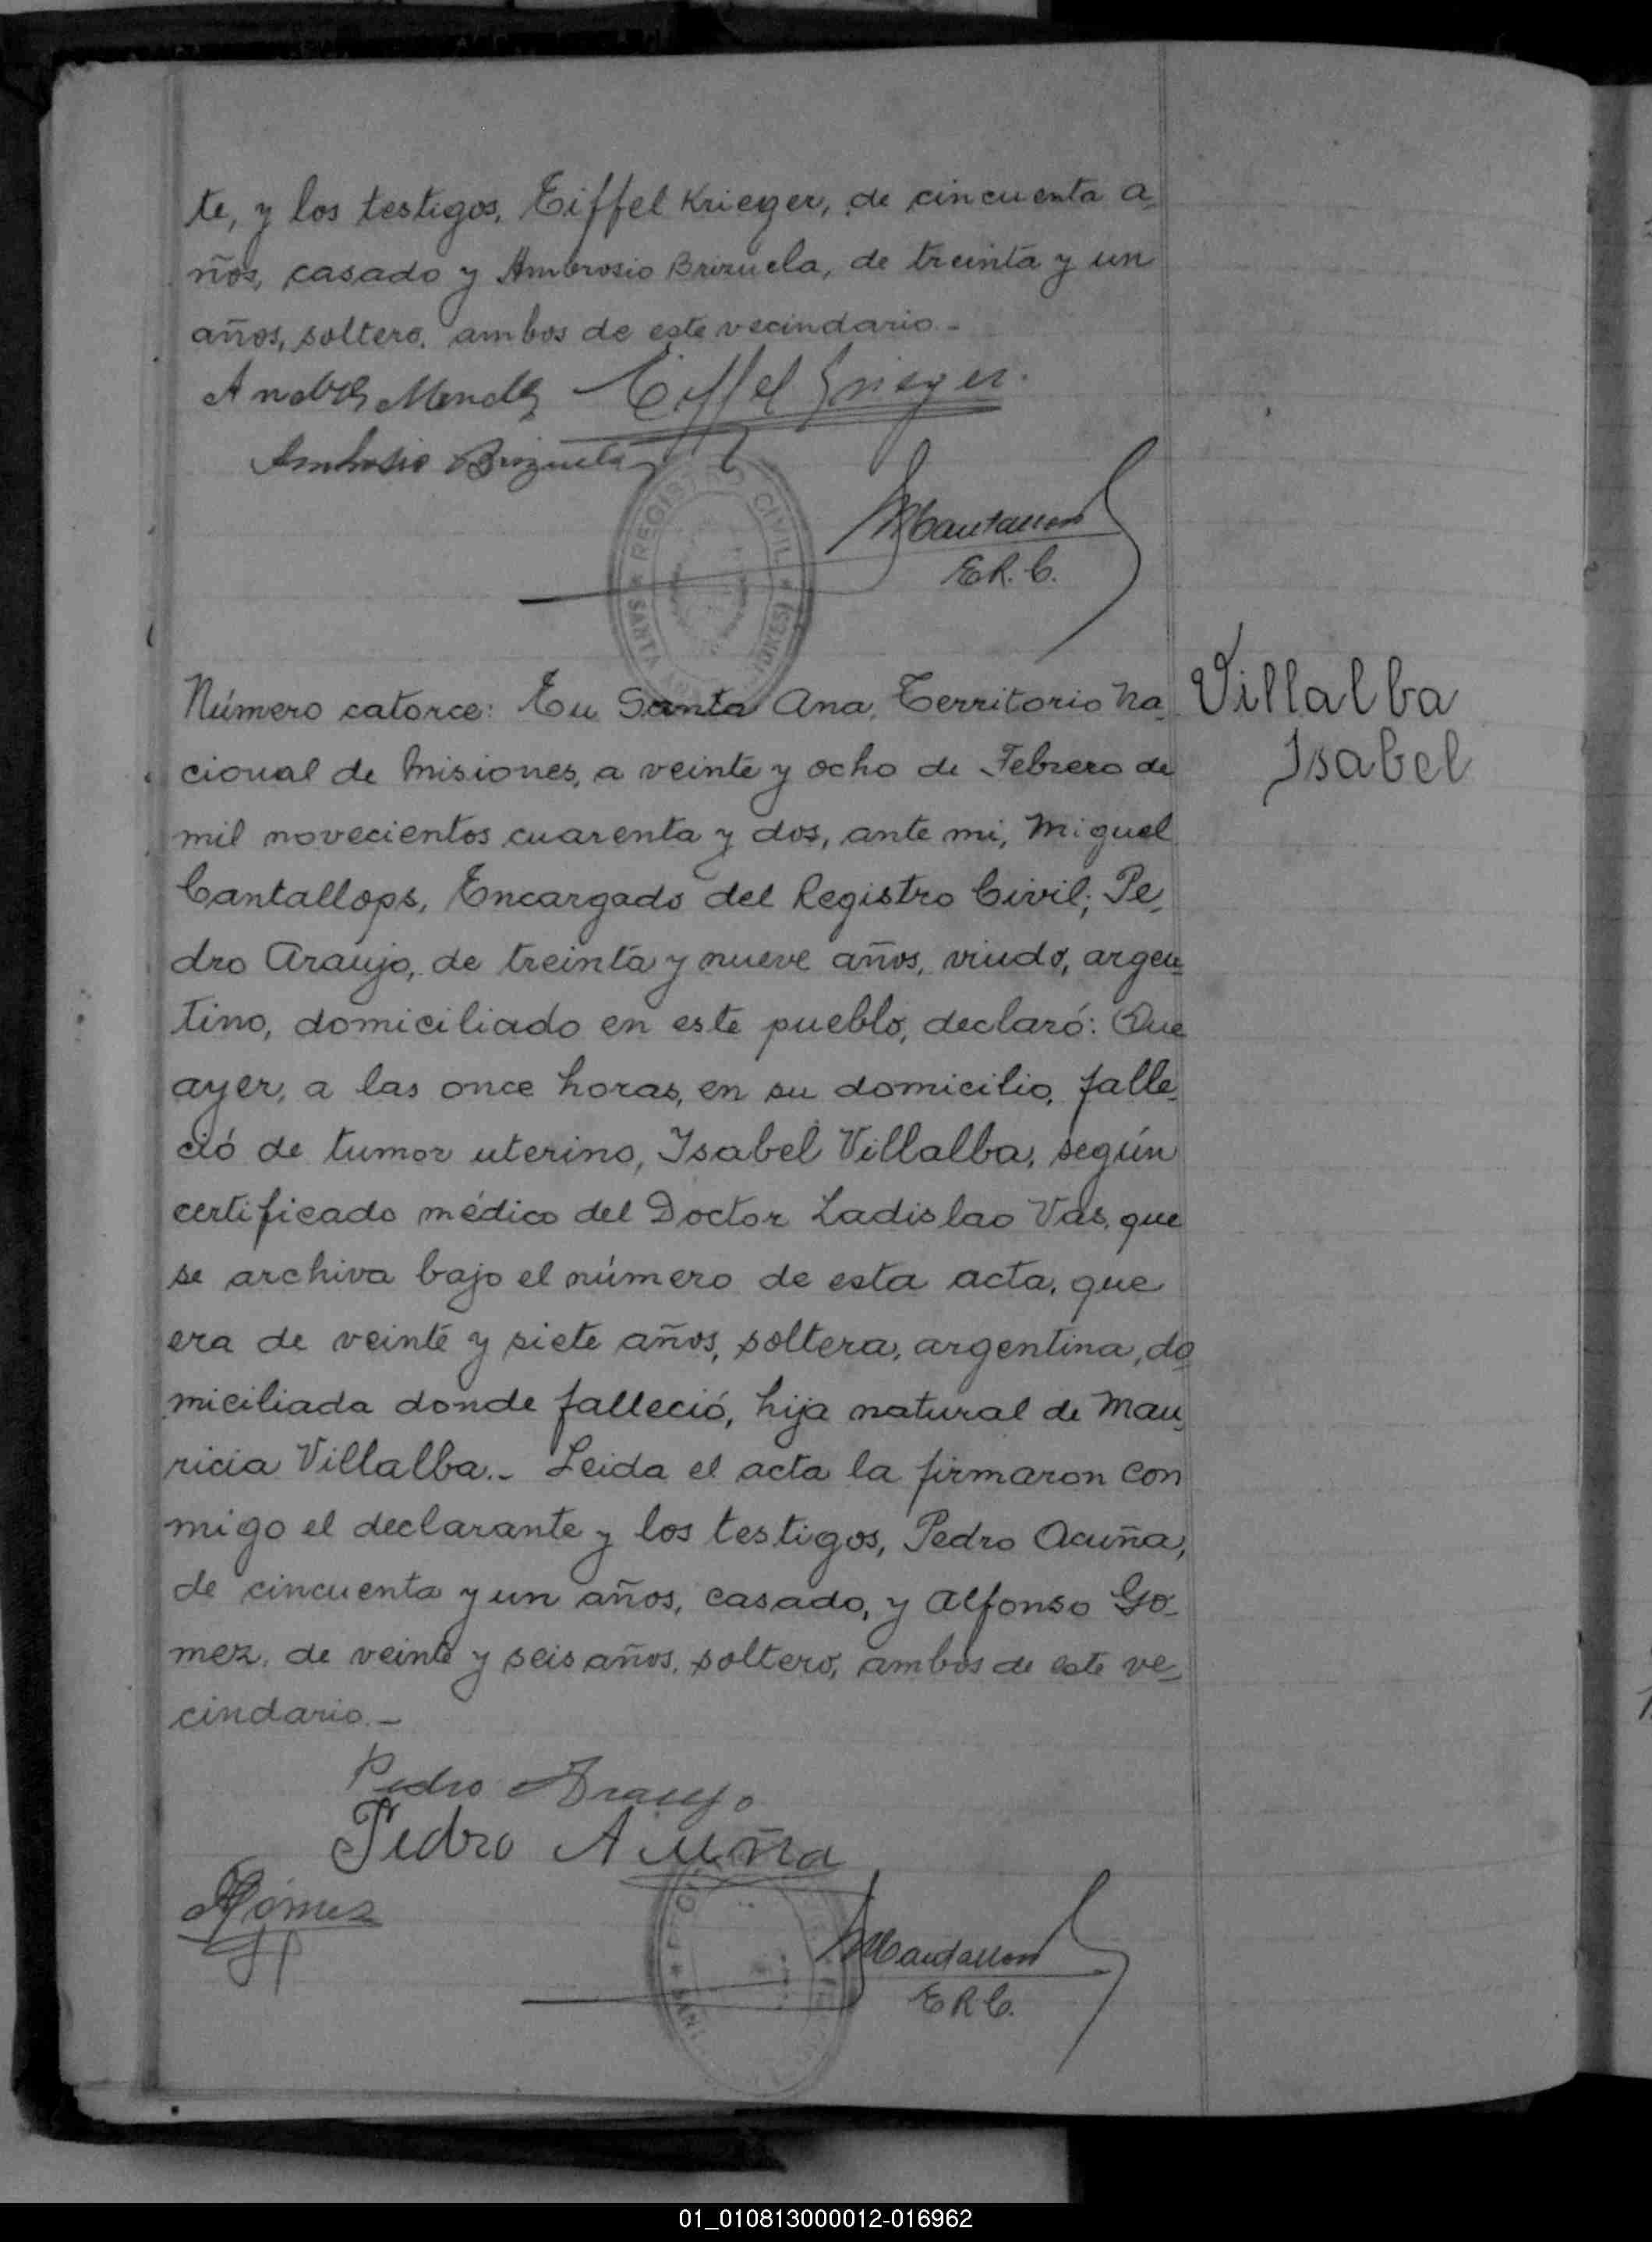 te, y los testigos, Eiffel Krieger, de cincuenta a-
ños, casado y Ambrosio Brizuela, de treinta y un
años, soltero, ambos de este vecindario.-
Andrés Mendez Eiffel Krieger.
Ambrosio Brizuela
REGISTRO CIVIL
SANTA
MCantallops
E.R.C.
Número catorce: En Santa Ana, Territorio Na- Villalba
cional de Misiones, a veinte y ocho de Febrero de Isabel
mil novecientos cuarenta y dos, ante mi, Miguel
Cantallops, Encargado del Registro Civil; Pe-
dro Araujo, de treinta y nueve años, viudo, argen-
tino, domiciliado en este pueblo, declaró: Que
ayer, a las once horas, en su domicilio, falle-
ció de tumor uterino, Isabel Villalba, según
certificado médico del Doctor Ladislao Vas, que
se archiva bajo el número de esta acta, que
era de veinte y siete años, soltera, argentina, do-
miciliada donde falleció, hija natural de Mau-
ricia Villalba.- Leida el acta la firmaron con
migo el declarante y los testigos, Pedro Acuña,
de cincuenta y un años, casado, y Alfonso Go-
mez, de veinte y seis años, soltero, ambos de este ve-
cindario.-
Pedro Araujo
Pedro Acuña
AGómez
MCantallops
E.R.C.
01_010813000012-016962